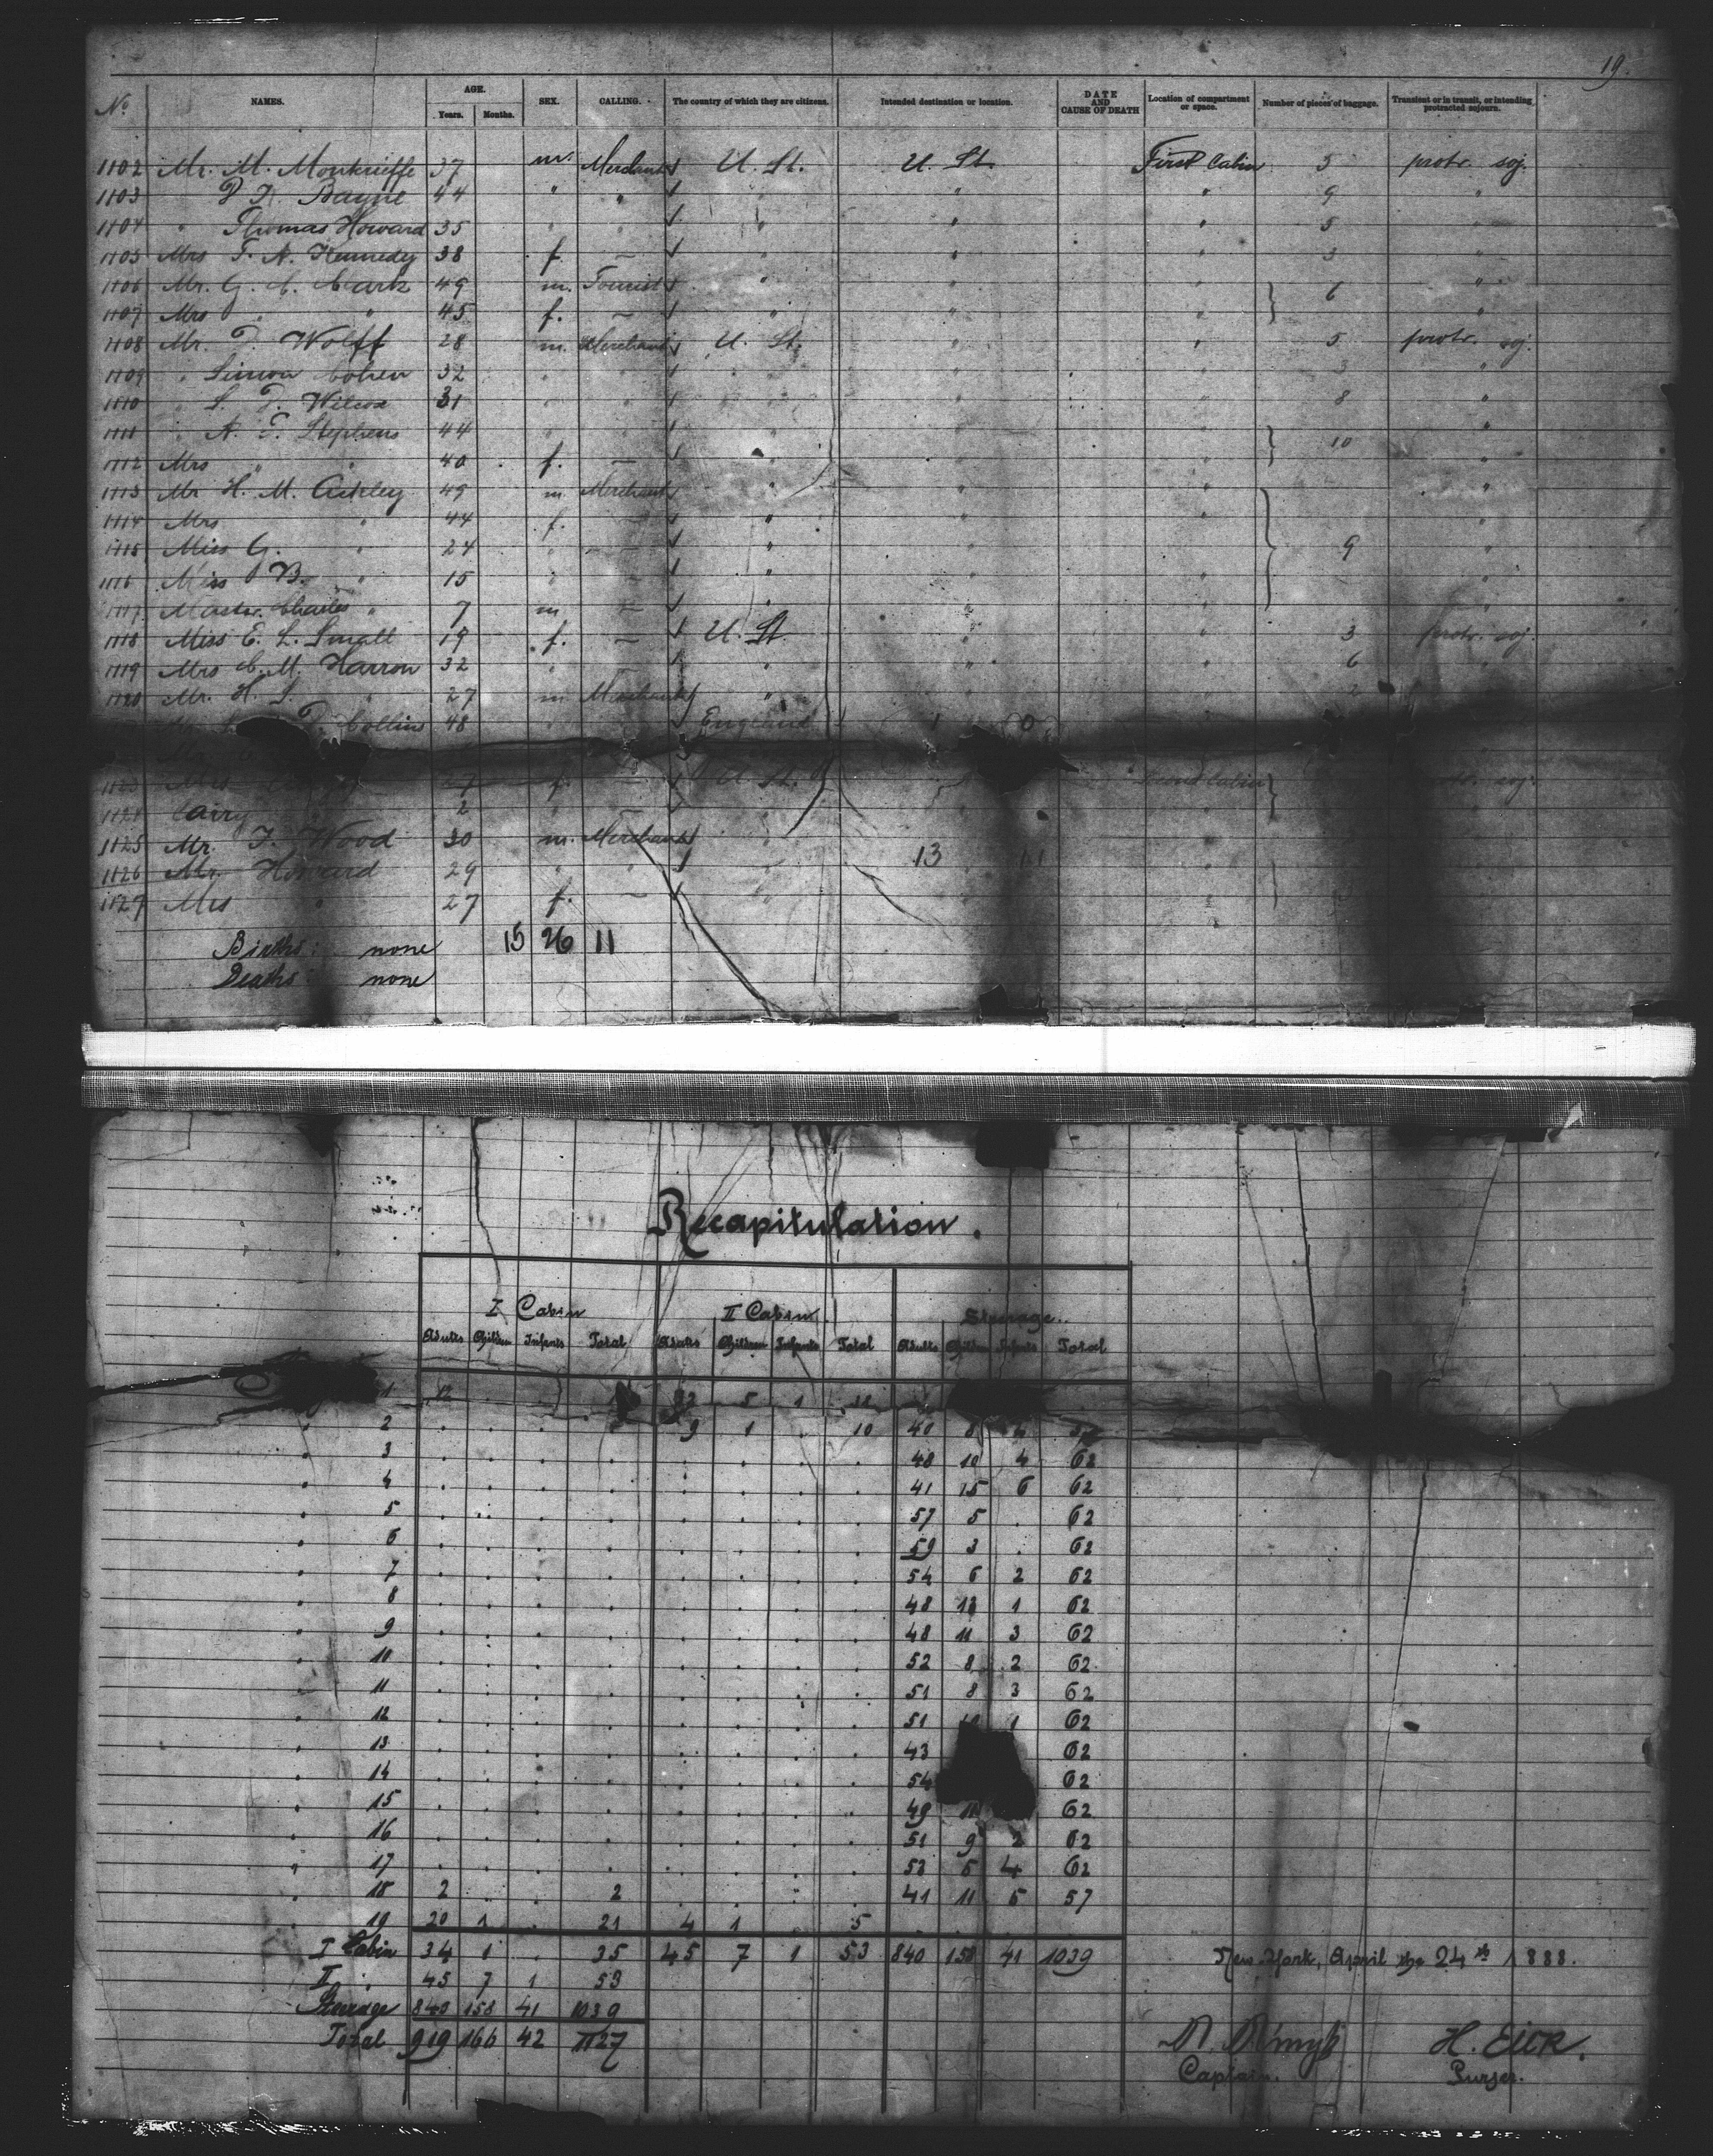 19.
No. NAMES. AGE. Years. Months. SEX. CALLING. The country of which they are citizens. Intended destination or location. DATE AND CAUSE OF DEATH Location of compartment or space. Number of pieces of baggage. Transient or in transit, or intending protracted sojourn.
1102 Mr. M. Monkrieffe 37 m. Merchant U. St. U. St. First Cabin 5 protr. soj.
1103 " Bayne 44 " " " " " 9 "
1104 " Thomas Howard 35 " " " " " 5 "
1105 Mrs T. A. Kennedy 38 f. — " " " 3 "
1106 Mr. G. C. Clark 49 m. Tourist " " " 6 "
1107 Mrs " 45 f. — " " " "
1108 Mr. T. Wolff 28 m. Merchant U. St. " " 5 protr. soj.
1109 " Simon Cohen 32 " " " " " 3 "
1110 " L. T. Wilcox 31 " " " " " 8 "
1111 " A. E. Stephens 44 " " " " " 10 "
1112 Mrs " 40 f. — " " " "
1113 Mr H. M. Ackley 49 m Merchant " " " "
1114 Mrs " 44 f. — " " " "
1115 Miss G. " 24 " — " " " 9 "
1116 Miss B. " 15 " — " " " "
1117 Master Charles " 7 m — " " " "
1118 Miss E. L. Small 19 f. — U. St. " " 3 protr. soj.
1119 Mrs C. M. Harron 32 " — " " " 6 "
1120 Mr. H. S. " 27 m Merchant " " " 2 "
Collins 48 " England
1123 Mrs 27 f. — U. St. Second Cabin soj.
1124 Cairy 2 " — "
1125 Mr. F. Wood 30 m. Merchant "
1126 Mr. Howard 29 " " " 13 11
1127 Mrs " 27 f. — "
Births: none 15 26 11
Deaths: none
Recapitulation.
I Cabin II Cabin Steerage.
Adults Children Infants Total Adults Children Infants Total Adults Children Infants Total
1 12 5 1
" 2 . . . . 9 1 . 10 40 8 4
" 3 . . . . . . . . 48 10 4 62
" 4 . . . . . . . . 41 15 6 62
" 5 . . . . . . . . 57 5 . 62
" 6 . . . . . . . . 59 3 . 62
" 7 . . . . . . . . 54 6 2 62
" 8 . . . . . . . . 48 13 1 62
" 9 . . . . . . . . 48 11 3 62
" 10 . . . . . . . . 52 8 2 62
" 11 . . . . . . . . 51 8 3 62
" 12 . . . . . . . . 51 1 62
" 13 . . . . . . . . 43 62
" 14 . . . . . . . . 54 62
" 15 . . . . . . . . 49 62
" 16 . . . . . . . . 51 9 2 62
" 17 . . . . . . . . 53 5 4 62
" 18 2 . . 2 . . . . 41 11 5 57
" 19 20 1 . 21 4 1 5 . . . .
I Cabin 34 1 . 35 45 7 1 53 840 158 41 1039 New York, April the 24th 1888.
II " 45 7 1 53
Steerage 840 158 41 1039
Total 919 166 42 1127 H. Eilk.
Captain. Purser.